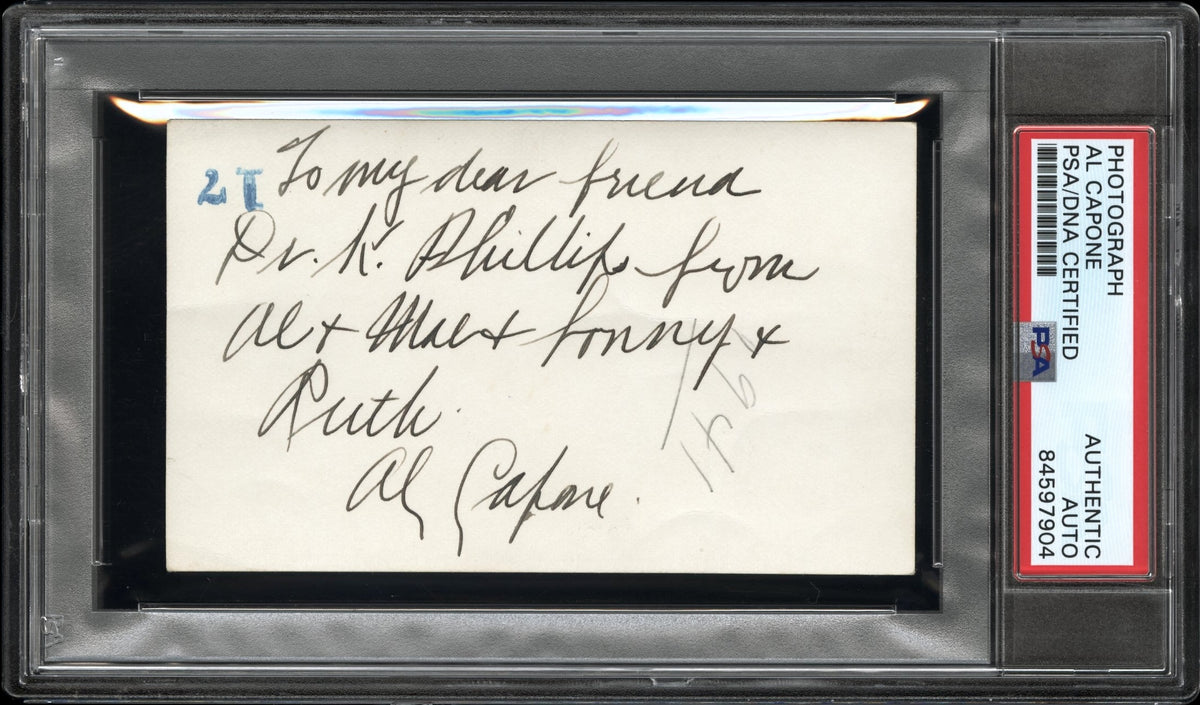 2 I
To my dear friend
Dr. K. Phillips from
Al + Mae + Sonny +
Ruth.
Al Capone.
1941
PHOTOGRAPH
AL CAPONE
PSA/DNA CERTIFIED
PSA
AUTHENTIC
AUTO
84597904